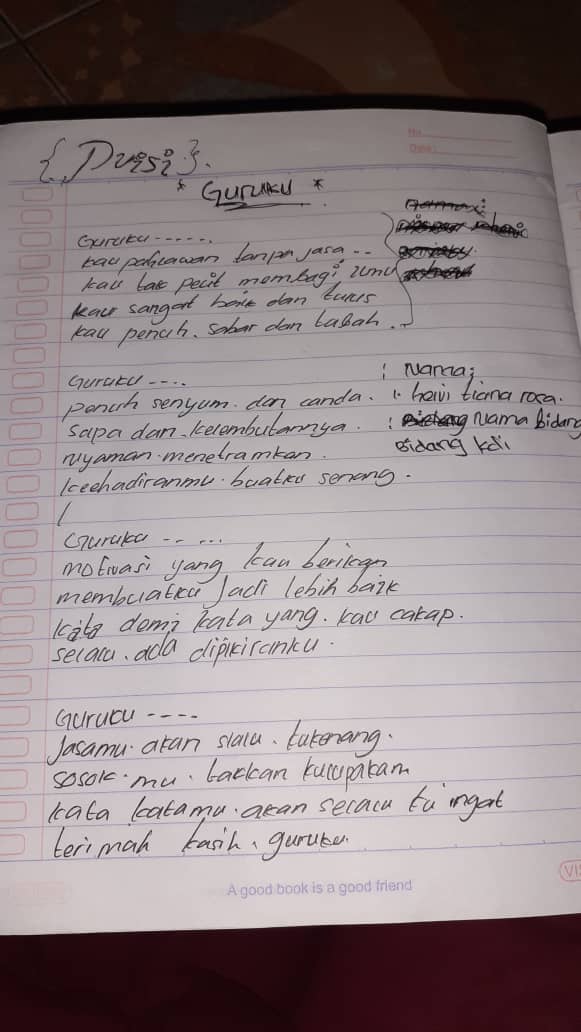 No
Date:
{ Puisi }.
* Guruku *
Guruku ------.
kau pahlawan tanpa jasa. --
kau tak pelit membagi ilmu
kau sangat baik dan tulus
kau penuh. sabar dan tabah. --
Guruku ----.
penuh senyum. dan canda.
sapa dan. kelembutannya.
nyaman. menetramkan.
kehadiranmu. buatku senang.
: Nama;
1. helvi tiana rosa.
: Nama Bidang
Bidang kdi
Guruku -- ---.
motivasi yang kau berikan
membuatku Jadi lebih baik
kata demi kata yang. kau cakap.
selalu. ada dipikiranku.
Guruku ----
Jasamu. akan slalu. kukenang.
sosok. mu. takkan kulupakam
kata katamu. akan selalu ku ingat
terimah kasih. guruku.
A good book is a good friend
VI